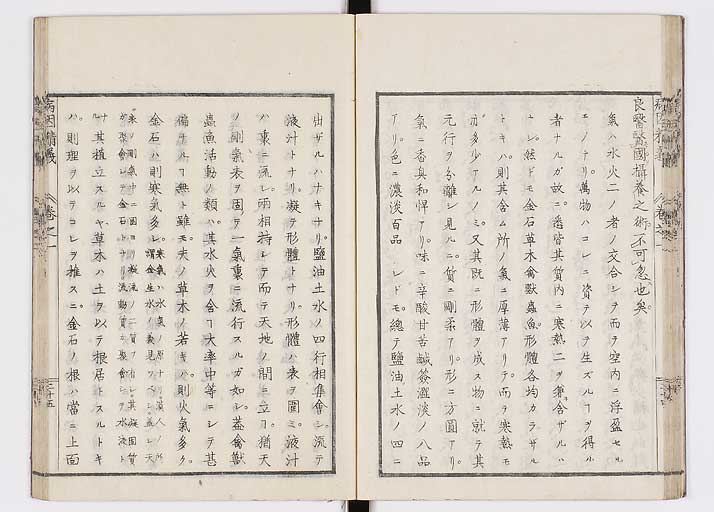 良醫醫國攝養之術不可忽也矣。
氣ハ水火二ノ者ノ交合シテ而ヲ空内ニ浮盈セル
モノナリ。萬物 コレニ資テ以テ生ズルヿヲ得ル
者ナルガ故ニ。悉皆其質内ニ寒熱二ヲ兼含ザルハ
ナシ。然ドモ金石草木禽獸蟲魚。形體各均カラザル
トキハ。則其含ム所ノ氣ニ厚薄アリテ。而ヲ寒熱モ
亦多少アルノミ。又其既ニ形體ヲ成ス物ニ就テ其
元行ヲ分離シ見ルニ。質ニ剛柔アリ。形ニ方圓アリ。
氣ニ香臭和悍アリ。味ニ辛酸甘苦鹹簽澀淡ノ八品
アリ。色ニ濃淡百品 レドモ。總テ鹽油土水ノ四ニ
出ザルハナキナリ。鹽油土水ノ四行相集會シ。流テ
液汁トナリ。凝テ形體トナリ。形體ハ表ヲ圍ミ。液汁
ハ裏ニ流レ。兩相持シテ而テ天地ノ間ニ立コ。猶天
ノ剛氣表ヲ固テ一氣裏ニ流行スルガ如シ。蓋禽獸
蟲魚活動ノ類ハ。其水火ヲ含ヿ大率中等ニシテ甚
偏ナルヿ無ト雖モ。夫ノ草木ノ若キハ。則火氣多ク。
金石ハ則寒氣多シ。
ナ其植立スルヤ。草木ハ土ヲ以テ根居トスルトキ
ハ。則理ヲ以テコレヲ推スニ。金石ノ根ハ當ニ上面
病因精義
卷之一
二十五